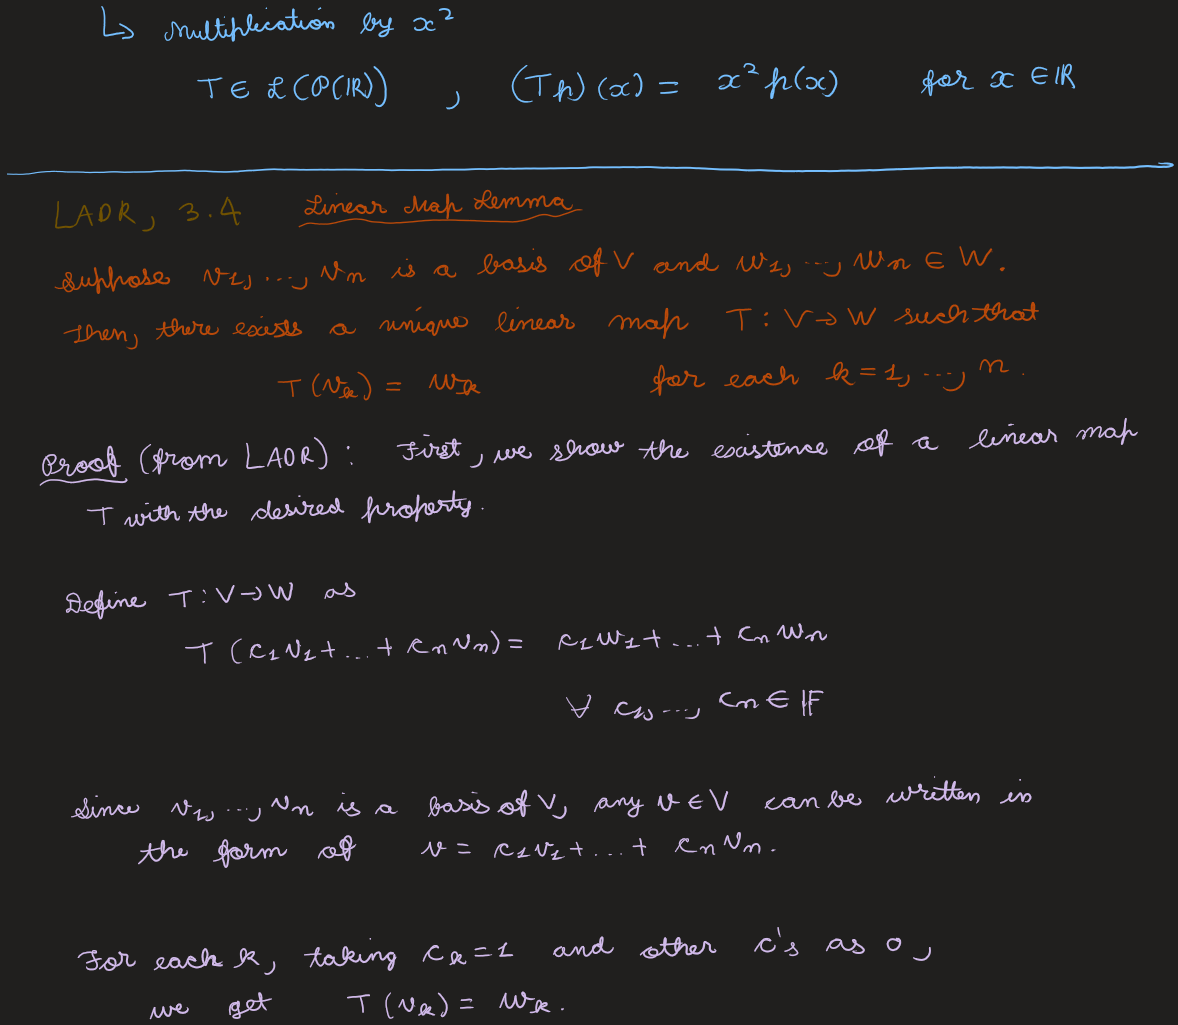 ↳ Multiplication by x²
T ∈ ℒ(𝒫(ℝ)) , (Tp)(x) = x² p(x) for x ∈ ℝ
LADR, 3.4 Linear Map Lemma
Suppose v₁, ..., vₙ is a basis of V and w₁, ..., wₙ ∈ W.
Then, there exists a unique linear map T : V → W such that
T(vₖ) = wₖ for each k = 1, ..., n.
Proof (from LADR) : First, we show the existence of a linear map
T with the desired property.
Define T : V → W as
T (c₁v₁ + ... + cₙvₙ) = c₁w₁ + ... + cₙwₙ
∀ c₁, ..., cₙ ∈ 𝔽
Since v₁, ..., vₙ is a basis of V, any v ∈ V can be written in
the form of v = c₁v₁ + ... + cₙvₙ.
For each k, taking cₖ = 1 and other c's as 0,
we get T(vₖ) = wₖ.